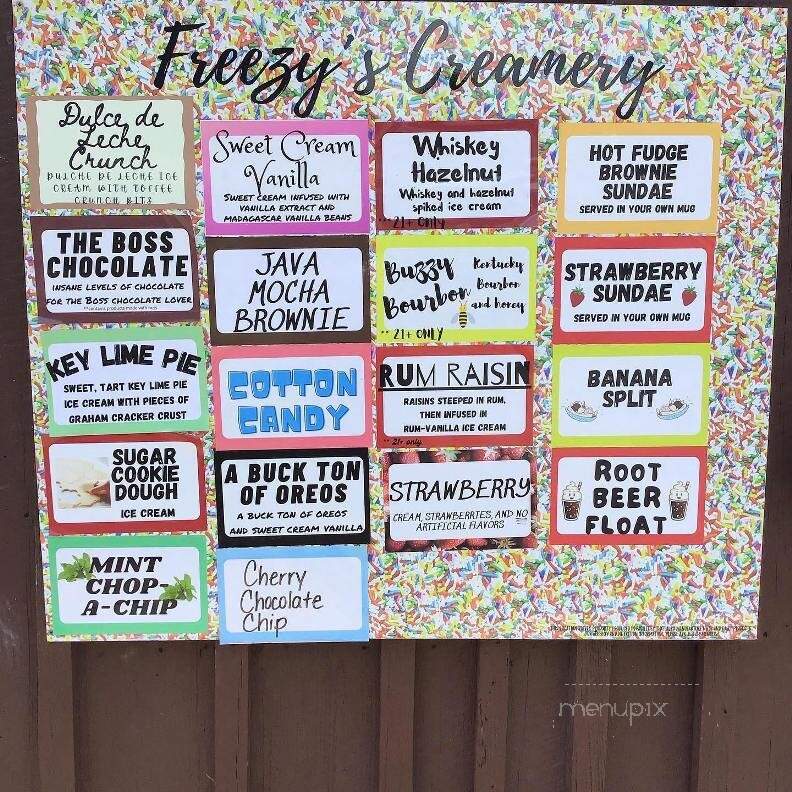 Freezy's Creamery
Dulce de
Leche
Crunch
DULCHE DE LECHE ICE
CREAM WITH TOFFEE
CRUNCH BITS
THE BOSS
CHOCOLATE
INSANE LEVELS OF CHOCOLATE
FOR THE BOSS CHOCOLATE LOVER
**contains products made with nuts
KEY LIME PIE
SWEET, TART KEY LIME PIE
ICE CREAM WITH PIECES OF
GRAHAM CRACKER CRUST
SUGAR
COOKIE
DOUGH
ICE CREAM
MINT
CHOP-
A-CHIP
Sweet Cream
Vanilla
SWEET CREAM INFUSED WITH
VANILLA EXTRACT AND
MADAGASCAR VANILLA BEANS
JAVA
MOCHA
BROWNIE
COTTON
CANDY
A BUCK TON
OF OREOS
A BUCK TON OF OREOS
AND SWEET CREAM VANILLA
Cherry
Chocolate
Chip
Whiskey
Hazelnut
Whiskey and hazelnut
spiked ice cream
***21+ Only
Buzzy
Bourbon
Kentucky
Bourbon
and honey
** 21+ ONLY
RUM RAISIN
RAISINS STEEPED IN RUM,
THEN INFUSED IN
RUM-VANILLA ICE CREAM
** 21+ only
STRAWBERRY
CREAM, STRAWBERRIES, AND NO
ARTIFICIAL FLAVORS
HOT FUDGE
BROWNIE
SUNDAE
SERVED IN YOUR OWN MUG
STRAWBERRY
SUNDAE
SERVED IN YOUR OWN MUG
BANANA
SPLIT
ROOT
BEER
FLOAT
menupix